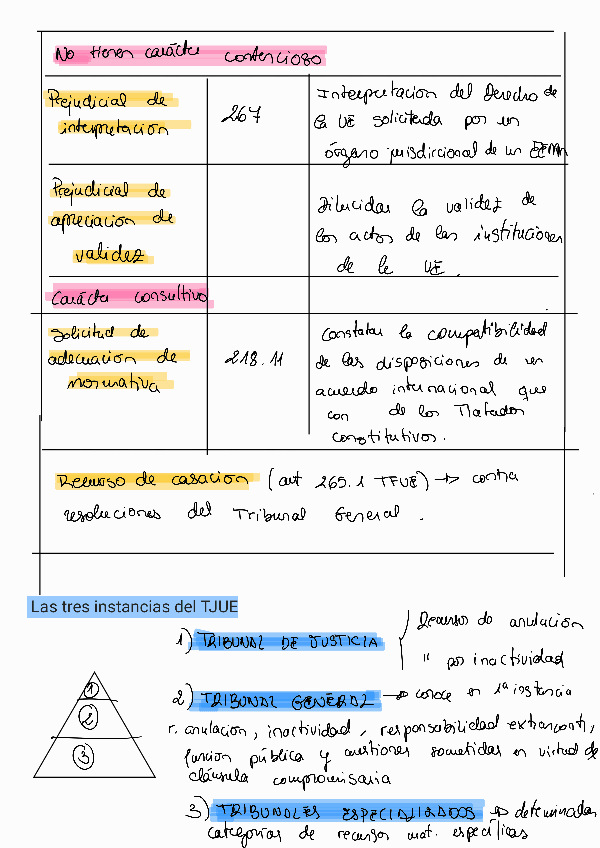 No tienen carácter contencioso
Prejudicial de
interpretación
267
Interpretación del Derecho de
la UE solicitada por un
órgano jurisdiccional de un EEMM
Prejudicial de
apreciación de
validez
Dilucidar la validez de
los actos de las instituciones
de la UE.
Carácter consultivo
Solicitud de
adecuación de
normativa
218.11
Constatar la compatibilidad
de las disposiciones de un
acuerdo internacional que
con de los Tratados
constitutivos.
Recurso de casación (art 265.1 TFUE) → contra
resoluciones del Tribunal General.
Las tres instancias del TJUE
1) TRIBUNAL DE JUSTICIA
Recurso de anulación
" por inactividad
1
2
3
2) TRIBUNAL GENERAL → conoce en 1ª instancia
r. anulación, inactividad, responsabilidad extracont,
función pública y cuestiones sometidas en virtud de
cláusula compromisaria
3) TRIBUNALES ESPECIALIZADOS → determinadas
categorías de recursos mat. específicas